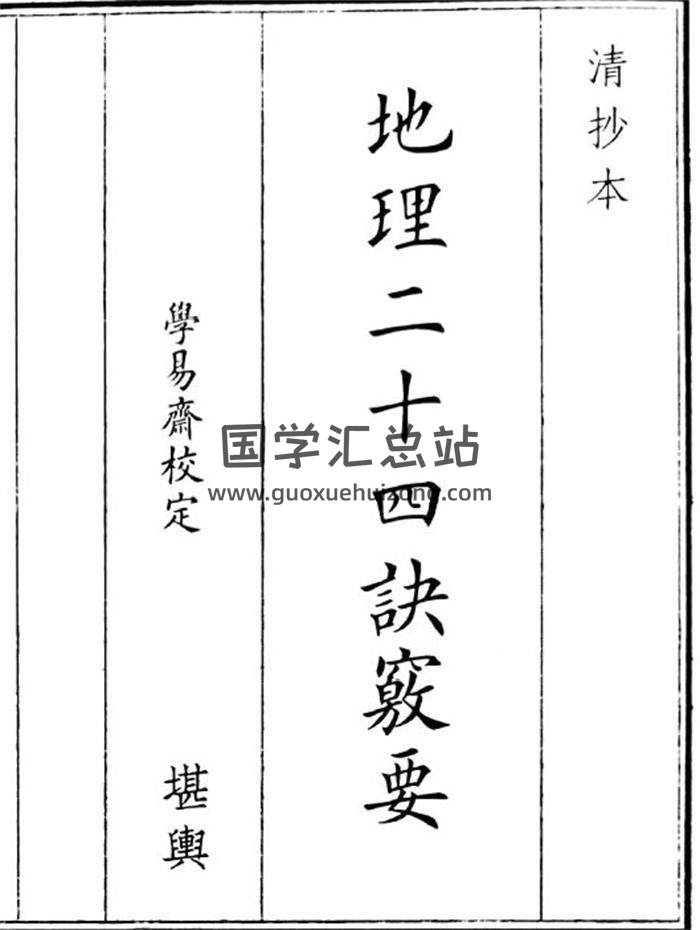 清抄本
地理二十四訣竅要
學易齋校定
堪輿
国学汇总站
www.guoxuehuizong.com